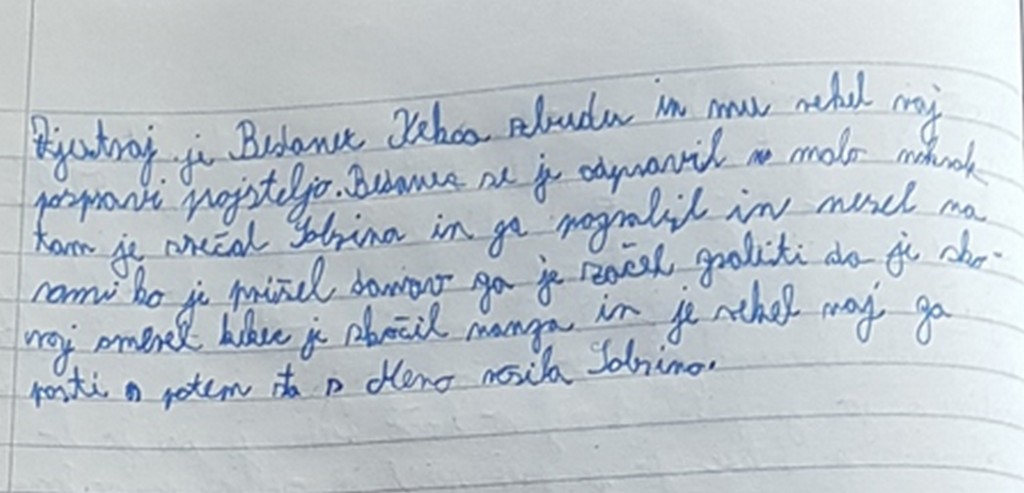 Zjutraj je Bedanec Kekca zbudu in mu rekel naj
pospravi pojsteljo. Bedanec se je odpravil malo
tam je srečal Tobzina in ga pograbil in nesel na
rami ko je prišel domov ga je začek goliti da je sko-
roj omerel kekec je skočil nanga in je rekel naj ga
posti potem sta s Meno rosila Tobzino.